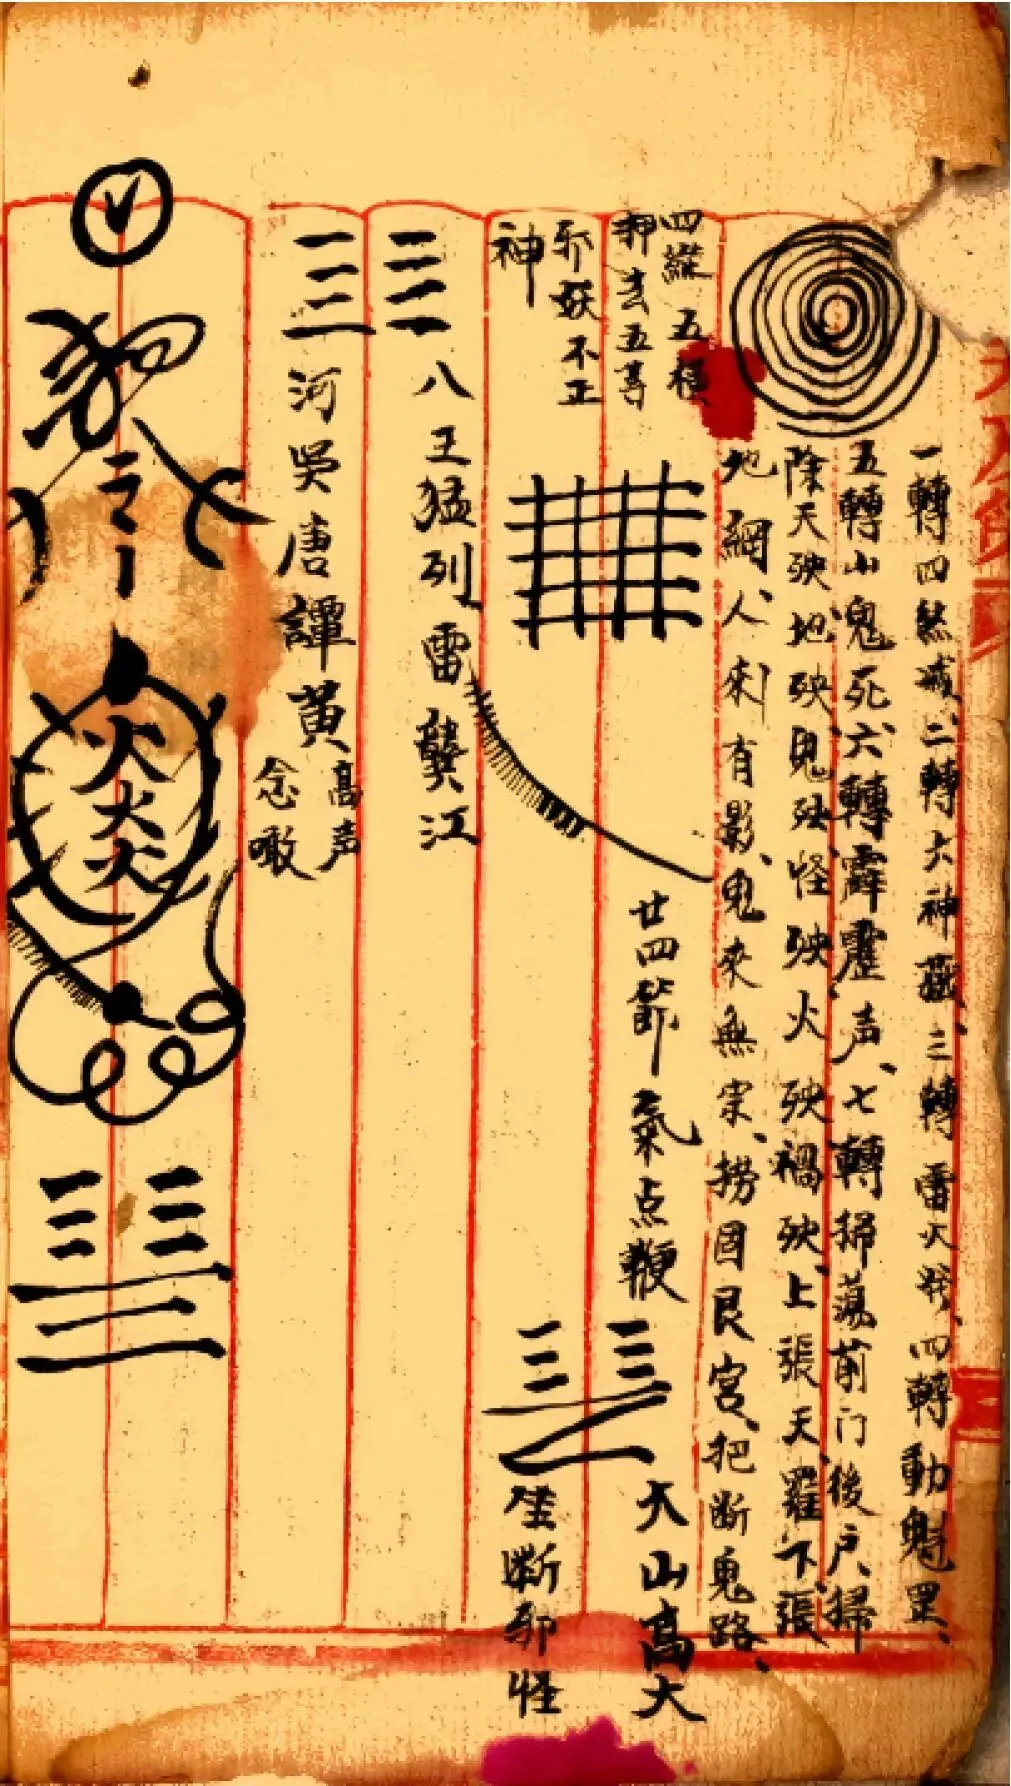 一轉四煞滅、二轉六神藏、三轉雷火發、四轉動魁罡、
五轉山鬼死、六轉霹靂声、七轉掃蕩前门後户、掃
除天殃地殃鬼殃怪殃火殃禍殃、上張天羅下張
地網、人來有影、鬼來無宗、撈囬艮宮、把断鬼路、
四縱五橫
押去五等
邪妖不正
神
廿四節氣点鞭
大山高大
坐断邪怪
八王猛列雷龔江
河吳唐譚黄
高声
念噉
火火火